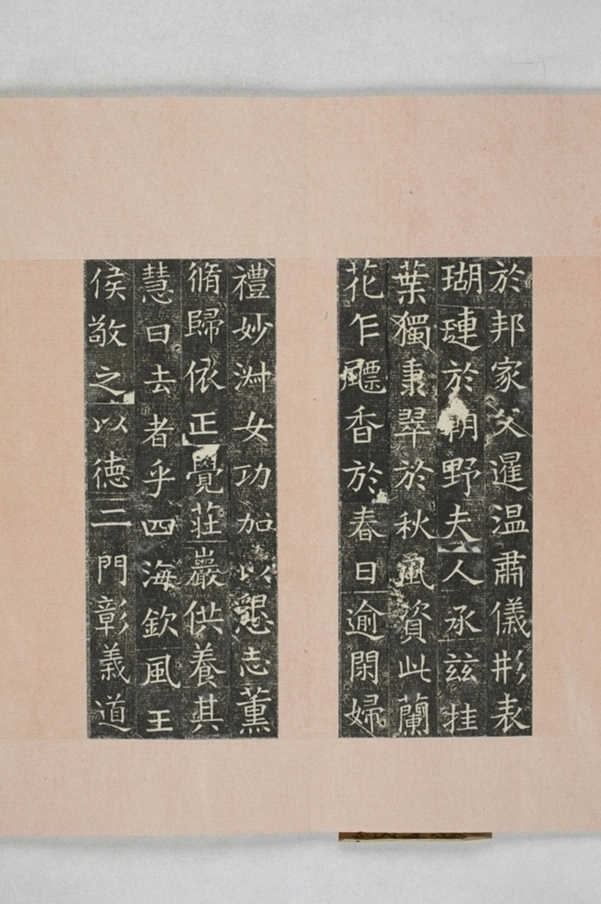 於邦家父暹温肅儀形表
瑚璉於朝野夫人承茲桂
葉獨秉翠於秋風資此蘭
花乍飄香於春日逾閑婦
禮妙洲女功加以懇志薰
脩歸依正覺莊巖供養其
慧日去者乎四海欽風王
侯敬之以德二門彰義道